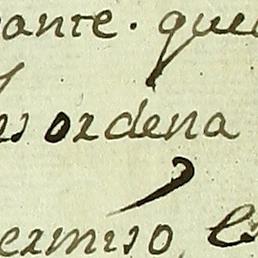 ante. que
es ordena
ermiso, e